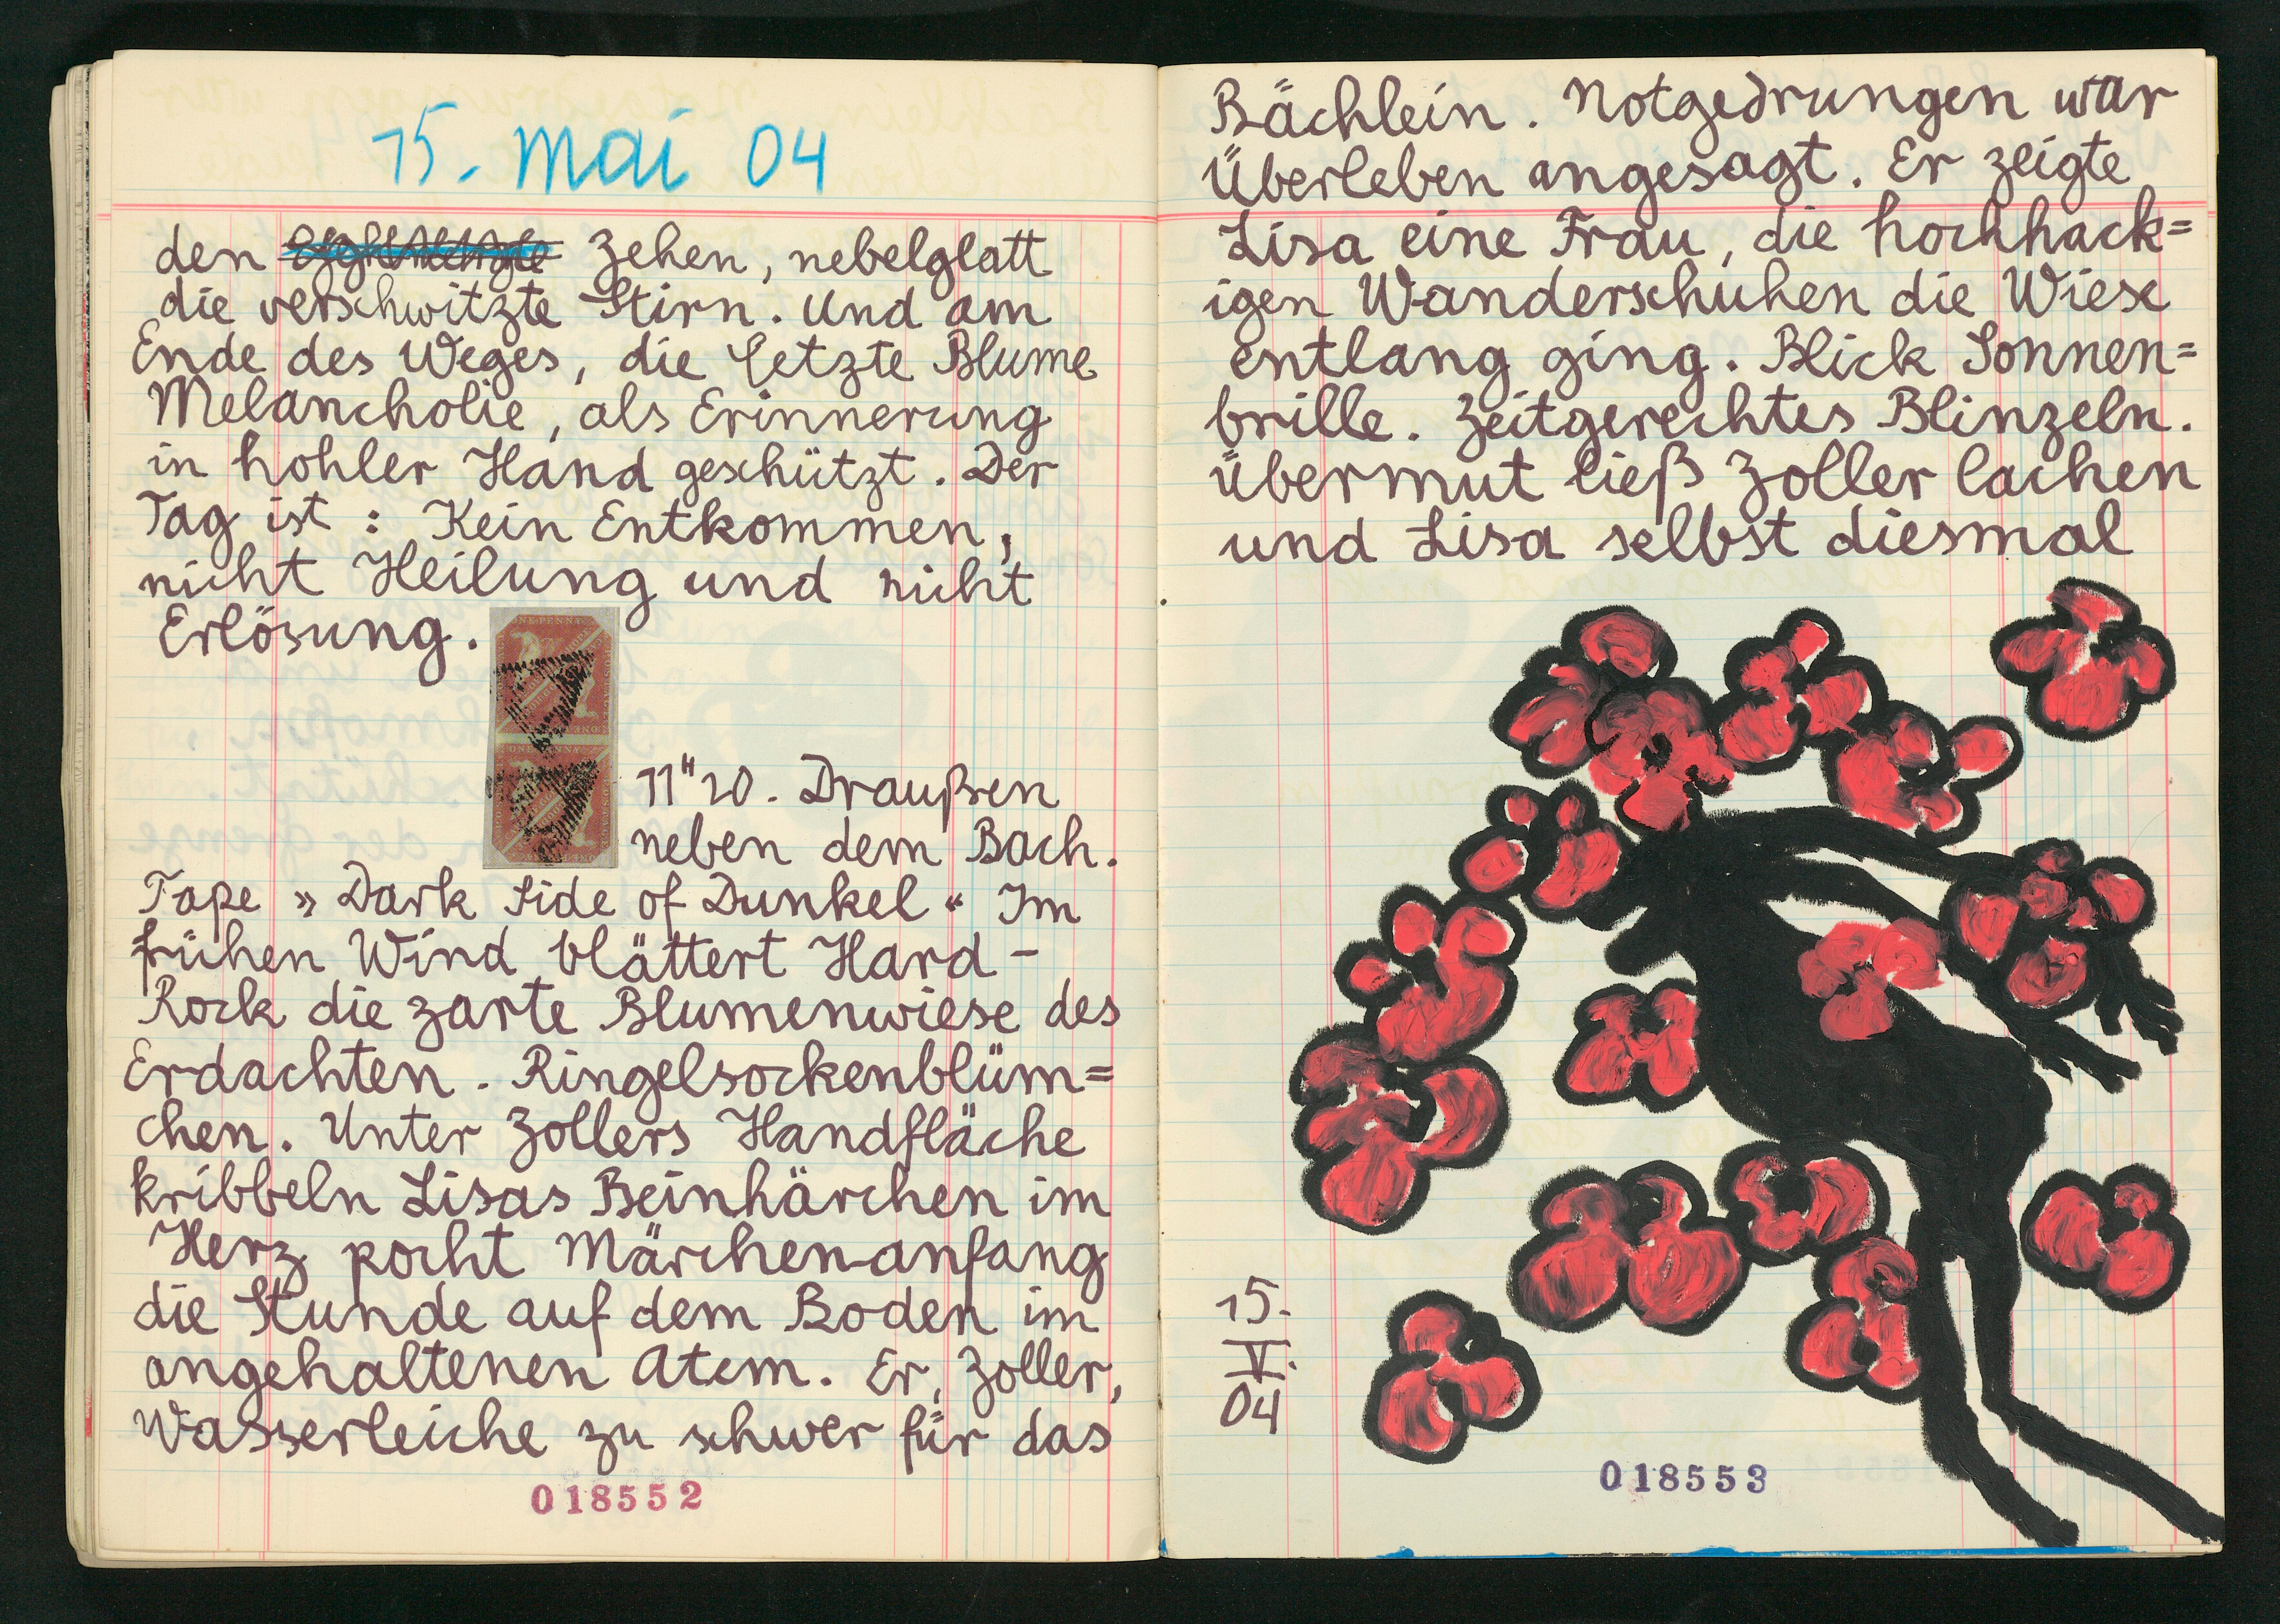 15. Mai 04
den Zehen, nebelglatt
die verschwitzte Stirn. Und am
Ende des Weges, die letzte Blume
Melancholie, als Erinnerung
in hohler Hand geschützt. Der
Tag ist : Kein Entkommen,
nicht Heilung und nicht
Erlösung.
ONE PENNY
11"20. Draußen
neben dem Bach.
Tape » Dark Side of Dunkel « Im
frühen Wind blättert Hard-
Rock die zarte Blumenwiese des
Erdachten. Ringelsockenblüm=
chen. Unter Zollers Handfläche
kribbeln Lisas Beinhärchen im
Herz pocht Märchenanfang
die Stunde auf dem Boden im
angehaltenen Atem. Er, Zoller,
Wasserleiche zu schwer für das
018552
Bächlein. Notgedrungen war
Überleben angesagt. Er zeigte
Lisa eine Frau, die hochhack=
igen Wanderschuhen die Wiese
entlang ging. Blick Sonnen=
brille. Zeitgerechtes Blinzeln.
Übermut ließ Zoller lachen
und Lisa selbst diesmal
15.
V.
04
018553